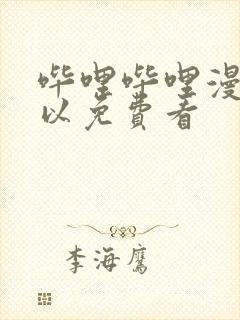 哔哩哔哩漫
以免费看
李海鹰